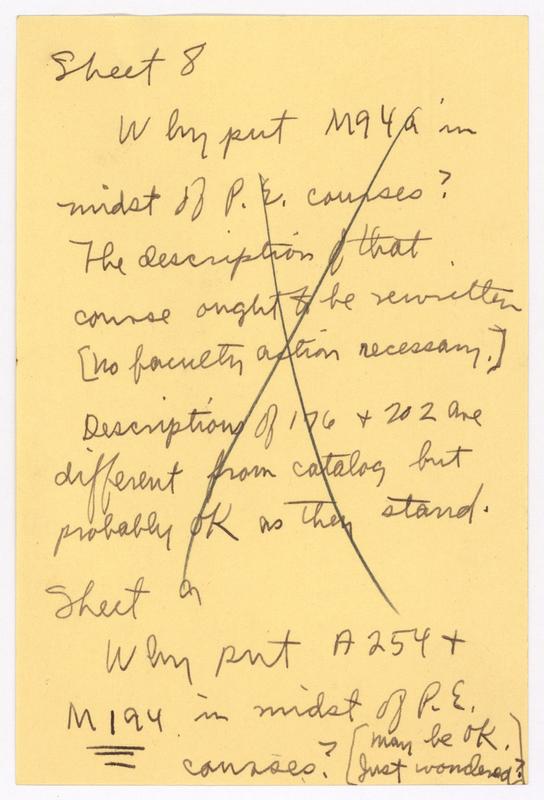 Sheet 8
Why put M94a in
midst of P.E. courses?
The description of that
course ought to be rewritten
[no faculty action necessary.]
Descriptions of 176 + 202 are
different from catalog but
probably OK as they stand.
Sheet 9
Why put A254 +
M194 in midst of P.E.
courses? [may be OK.
Just wondered?]